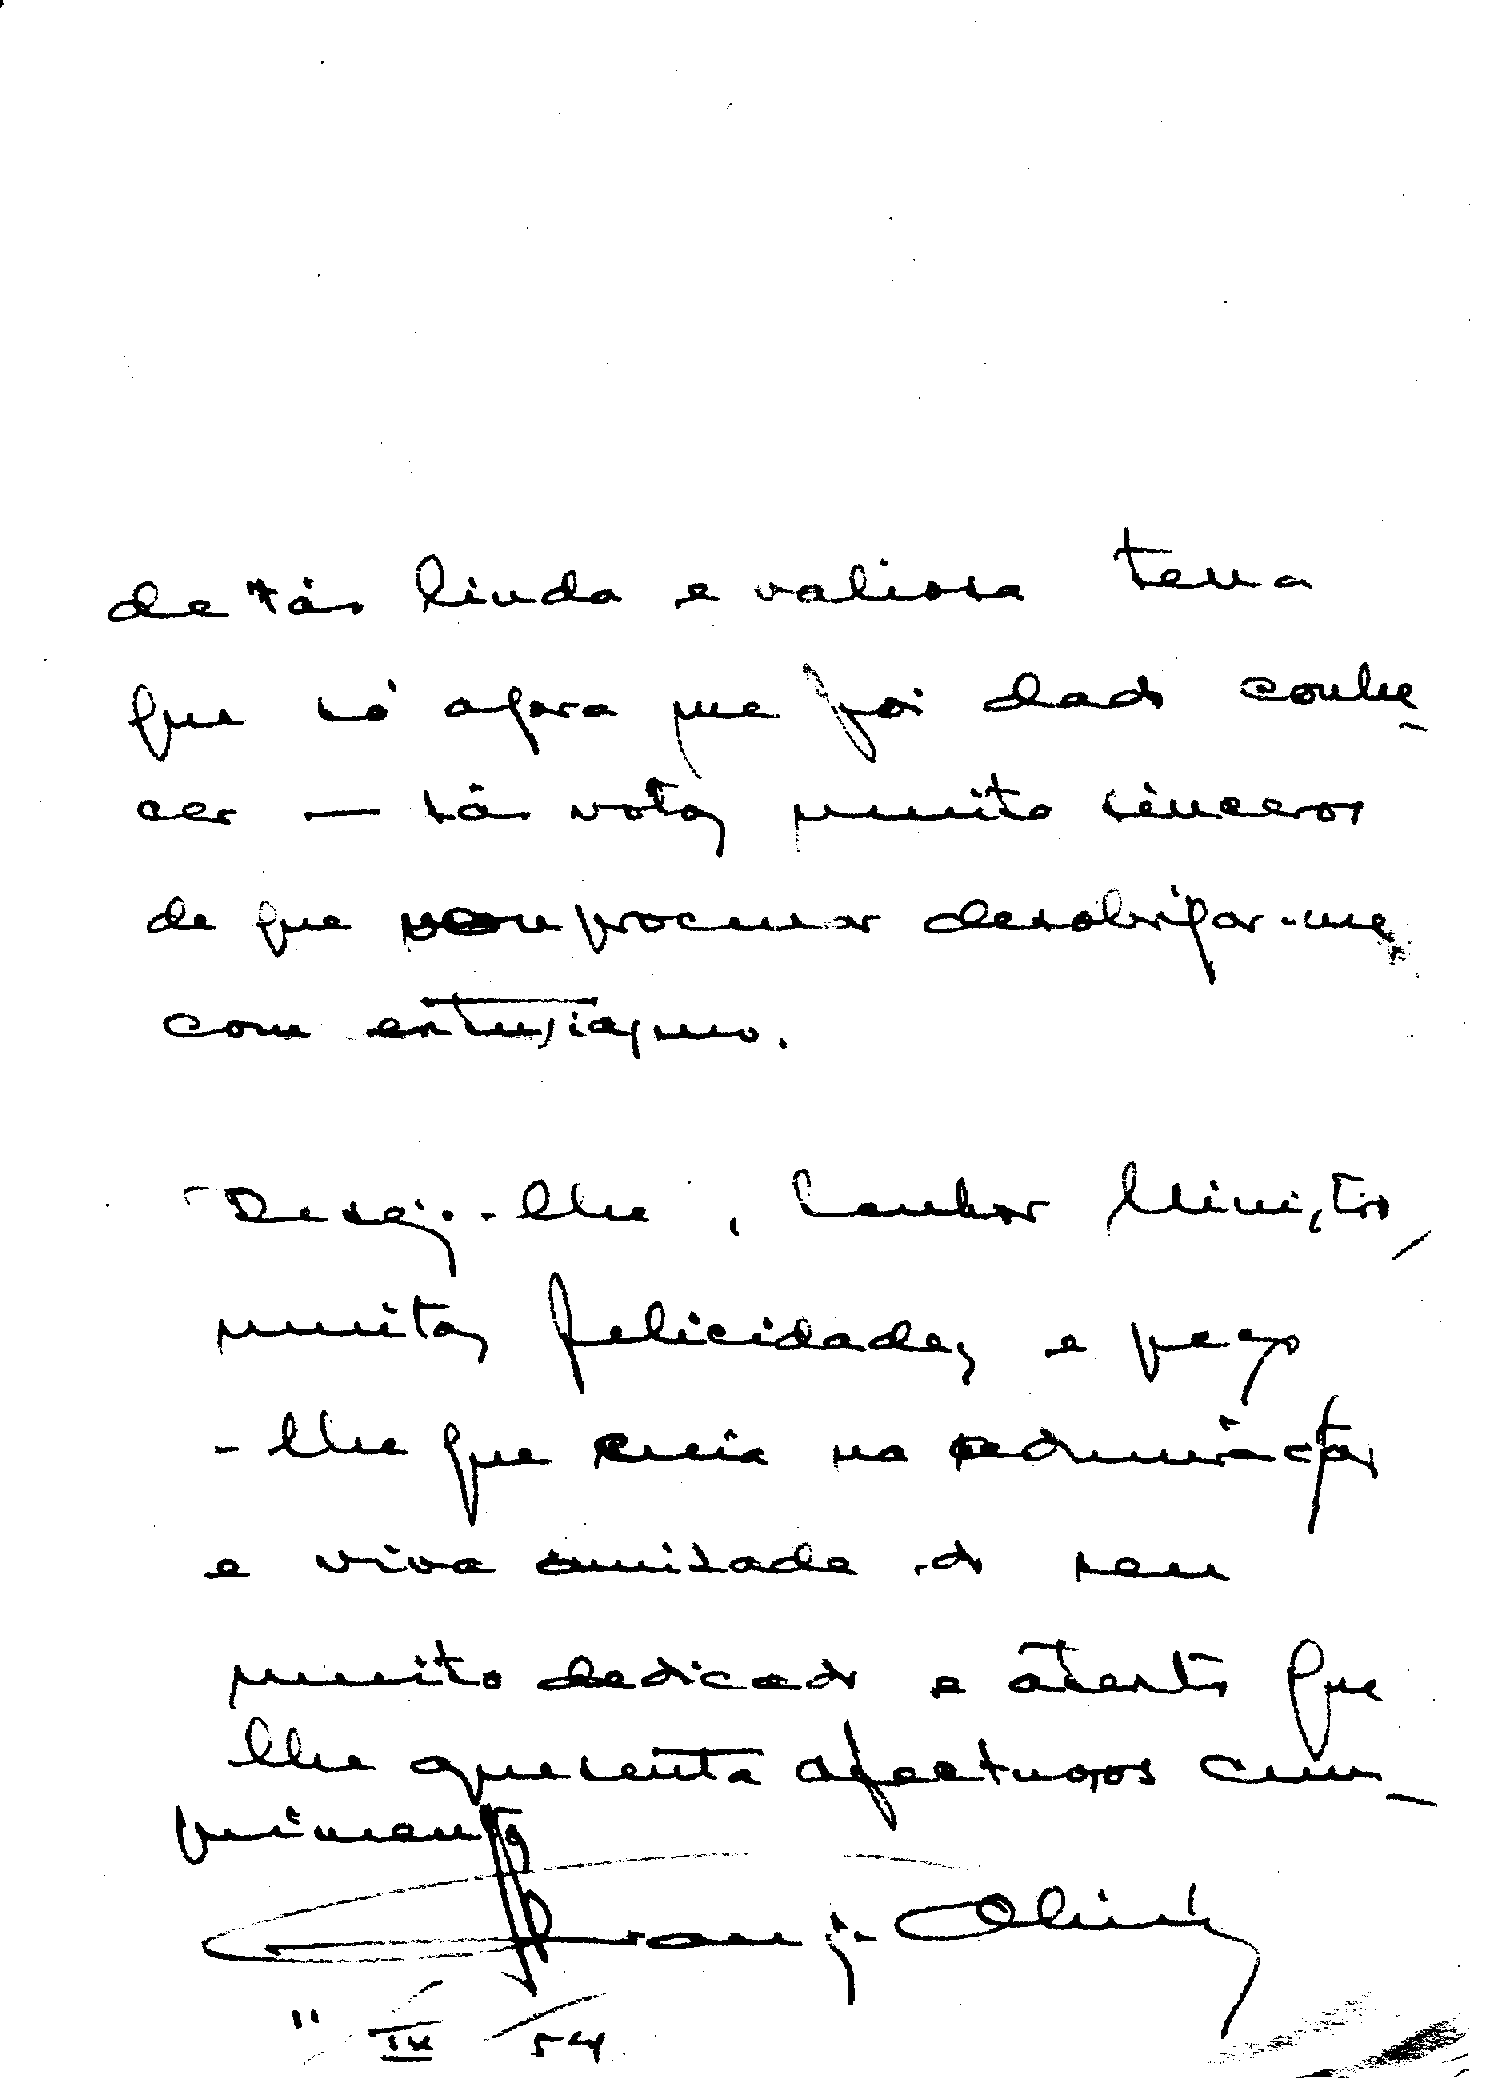 de tão linda e valiosa terra
que só agora me foi dado conhe
cer — são votos muito sinceros
de que vou procurar desobrigar-me
com entusiasmo.
Desejo-lhe, Senhor Ministro,
muitas felicidades, e peço
-lhe que creia na admiração
e viva amizade do seu
muito dedicado e atento que
lhe apresenta afectuosos cum-
primentos
11 / IX / 54